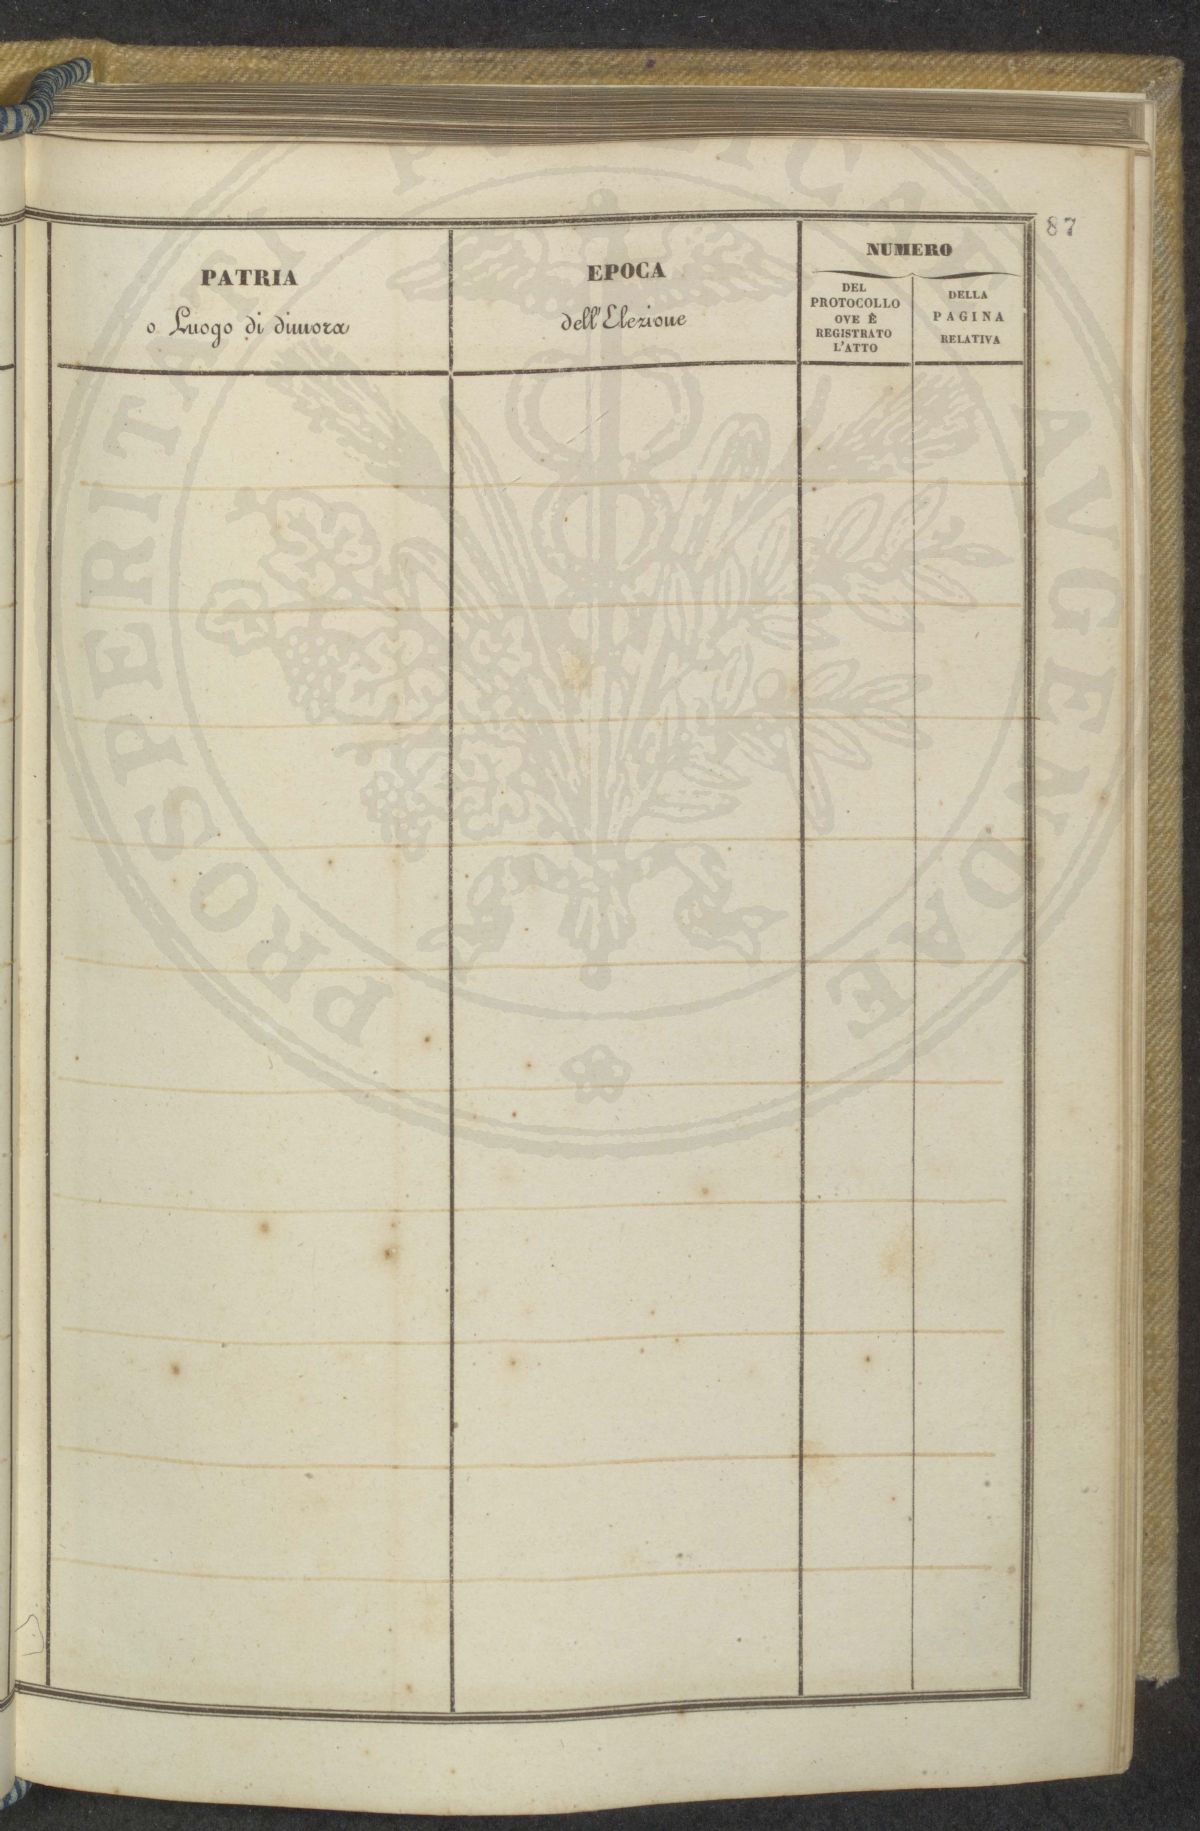 87
PATRIA
o Luogo di dimora
EPOCA
dell'Elezione
NUMERO
DEL
PROTOCOLLO
OVE È
REGISTRATO
L'ATTO
DELLA
PAGINA
RELATIVA
PROSPERITATI PUBLICAE AVGENDAE